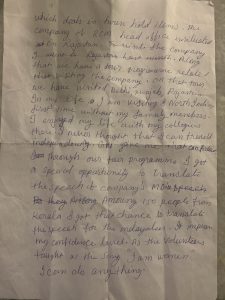 which deals in house hold items. The
company of RCM head office situated
in Rajastan. To visit the company
I went to Rajastan last month. Along
that we have 11 days programme related
to visiting the company. On that tour
we have visited Delhi, Punjab, Rajasthan
In my life I am visiting a North India
first time without my family members.
I enjoyed my tour with my collegues
there I never thought that I can travel
independently. RCM gave me that confiden
through our tour programme I got
a special opportunity to translate
the speech of company's
Among 150 people from
kerala I got this chance to translate
the speech for the malayalees. It improve
my confidence level. As the volunteers
taught us the song I am women
I can do anything.